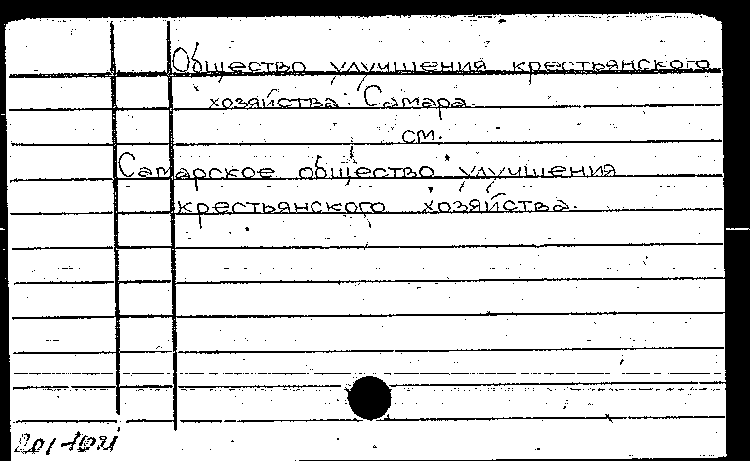 Общество улучшения крестьянского
хозяйства. Самара.
см.
Самарское общество улучшения
крестьянского хозяйства.